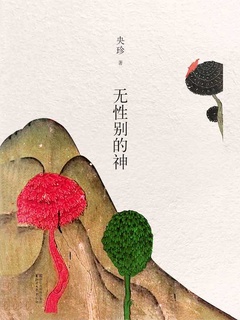 央珍 著
无性别的神